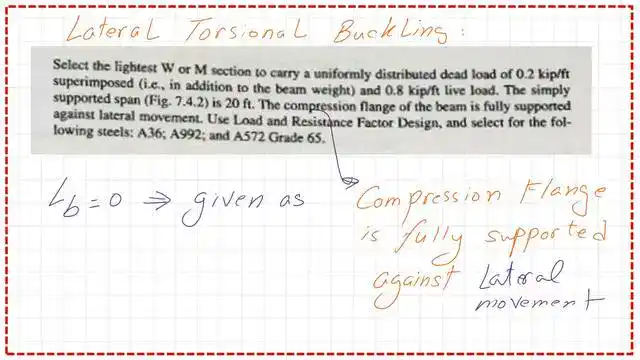 Lateral Torsional Buckling:
Select the lightest W or M section to carry a uniformly distributed dead load of 0.2 kip/ft
superimposed (i.e., in addition to the beam weight) and 0.8 kip/ft live load. The simply
supported span (Fig. 7.4.2) is 20 ft. The compression flange of the beam is fully supported
against lateral movement. Use Load and Resistance Factor Design, and select for the fol-
lowing steels: A36; A992; and A572 Grade 65.
Lb=0 ⇒ given as
Compression Flange
is fully supported
against Lateral
movement